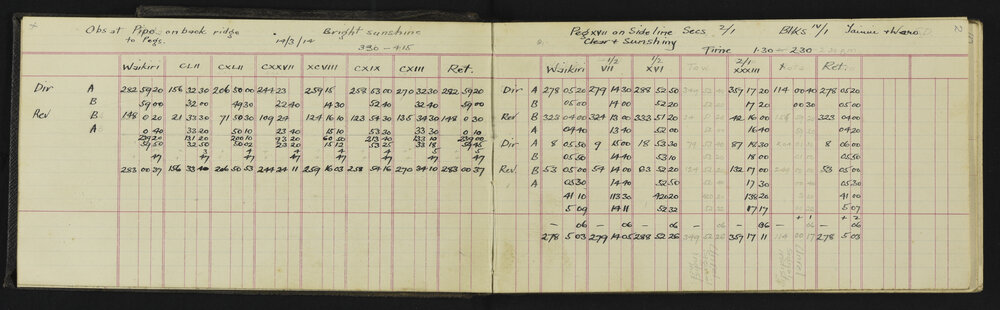 Obs at Pipo on back ridge Bright sunshine
to Pegs. 14/3/14 3.30 - 4.15
Waikiri CLII CXLII CXXVII XCVIII CXIX CXIII Ret.
Dir A 282 59 20 156 32 30 206 50 00 244 23 259 15 258 53 00 270 32 30 282 59 20
B 59 00 32 00 49 30 22 40 14 30 52 40 32 40 59 00
Rev B 148 0 20 21 33 30 71 50 30 109 24 124 16 10 123 54 30 135 34 30 148 0 30
A 0 40 33 20 50 10 23 40 15 10 53 20 33 30 0 10
239 20 131 20 200 10 93 20 60 50 213 40 133 10 239 00
59 50 32 50 50 02 23 20 15 12 53 25 33 18 59 45
3 4 4 4 5 5
47 47 47 47 47 47 47 47
283 00 37 156 33 40 206 50 53 244 24 11 259 16 03 258 54 16 270 34 10 283 00 37
Peg XVII on Side line Secs 2/1 Blks IV/1 Tainui + Waro
Clear + Sunshiny Time 1.30 to 2.30
Waikiri 1/2 VII 1/2 XVI 2/1 XXXIII Ret.
Dir A 278 05 20 279 14 30 288 52 50 359 17 20 114 00 40 278 05 20
B 05 00 14 00 52 20 17 20 00 30 05 00
Rev B 323 04 00 324 13 00 333 51 20 42 16 00 323 04 00
A 04 40 13 40 52 00 16 40 04 20
Dir A 8 05 50 9 15 00 18 53 30 87 18 30 8 06 00
B 05 50 14 40 53 10 18 00 05 50
Rev. B 53 05 00 54 14 00 63 52 20 132 17 00 53 05 00
A 05 30 14 40 52 50 17 30 05 30
41 10 113 30 420 20 138 20 41 00
5 09 14 11 52 32 17 17 5 07
+1 +2
- 06 - 06 - 06 - 06 - 06
278 5 03 279 14 05 288 52 26 359 17 11 114 00 17 278 5 03